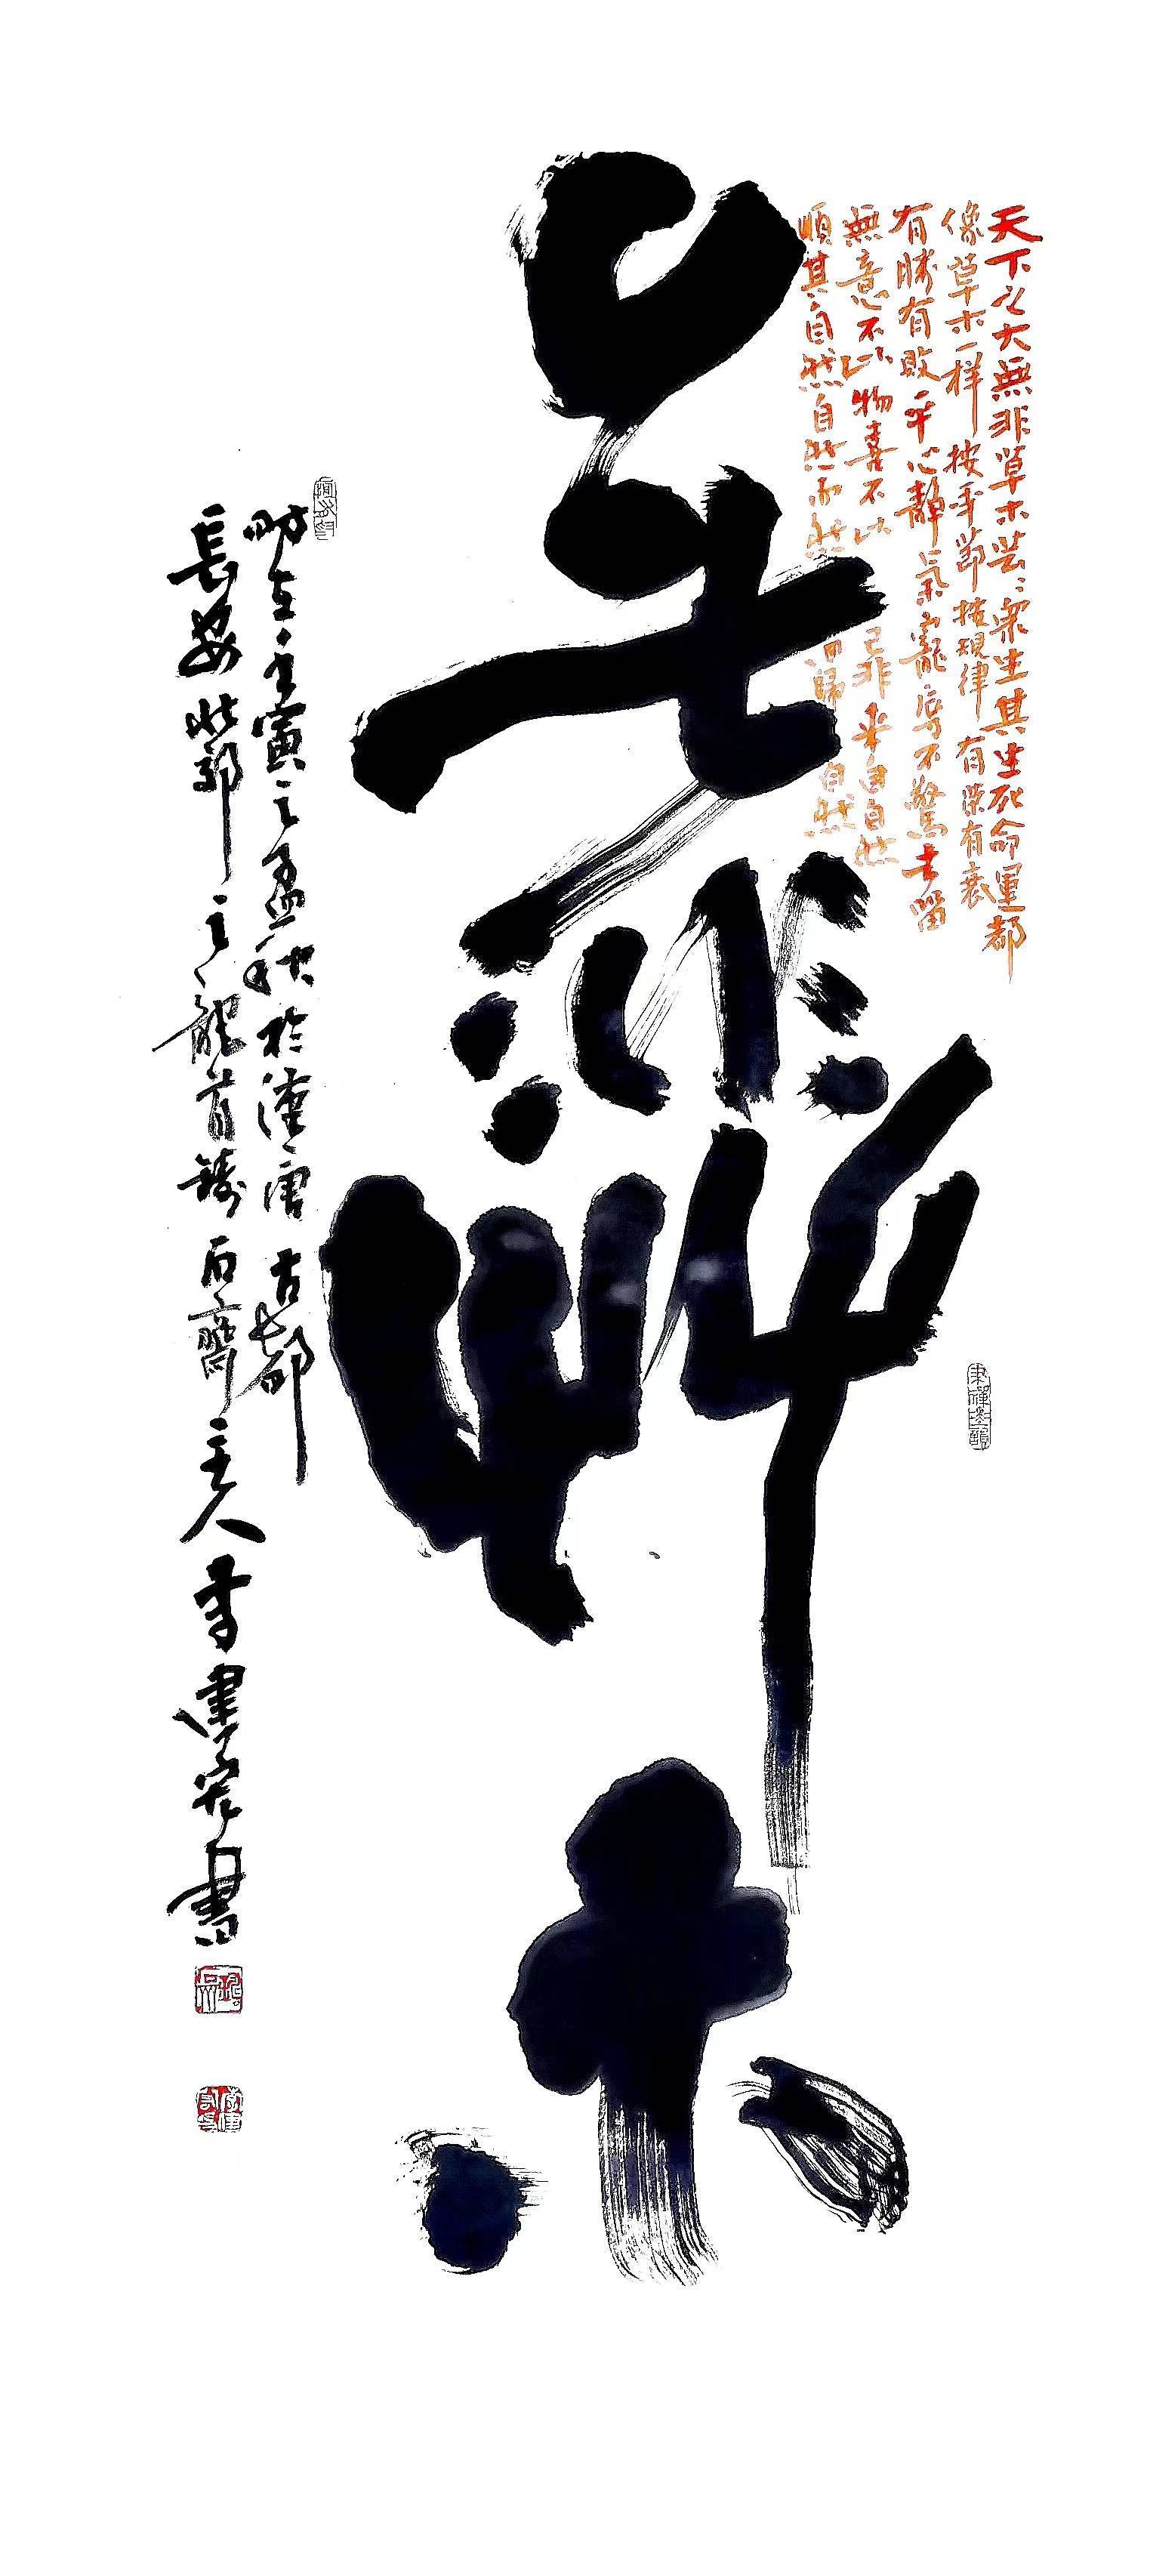 天下之大無非草木芸芸眾生其生死命運都
像草木一样按季節按規律有榮有衰
有勝有敗平心靜氣寵辱不驚去留
無意不以物喜不以己非来自自然
順其自然自然而然回歸自然
無非草木
時在壬寅之孟秋於漢唐古都
長安北郭之龍首鑄石齋主人李建安書